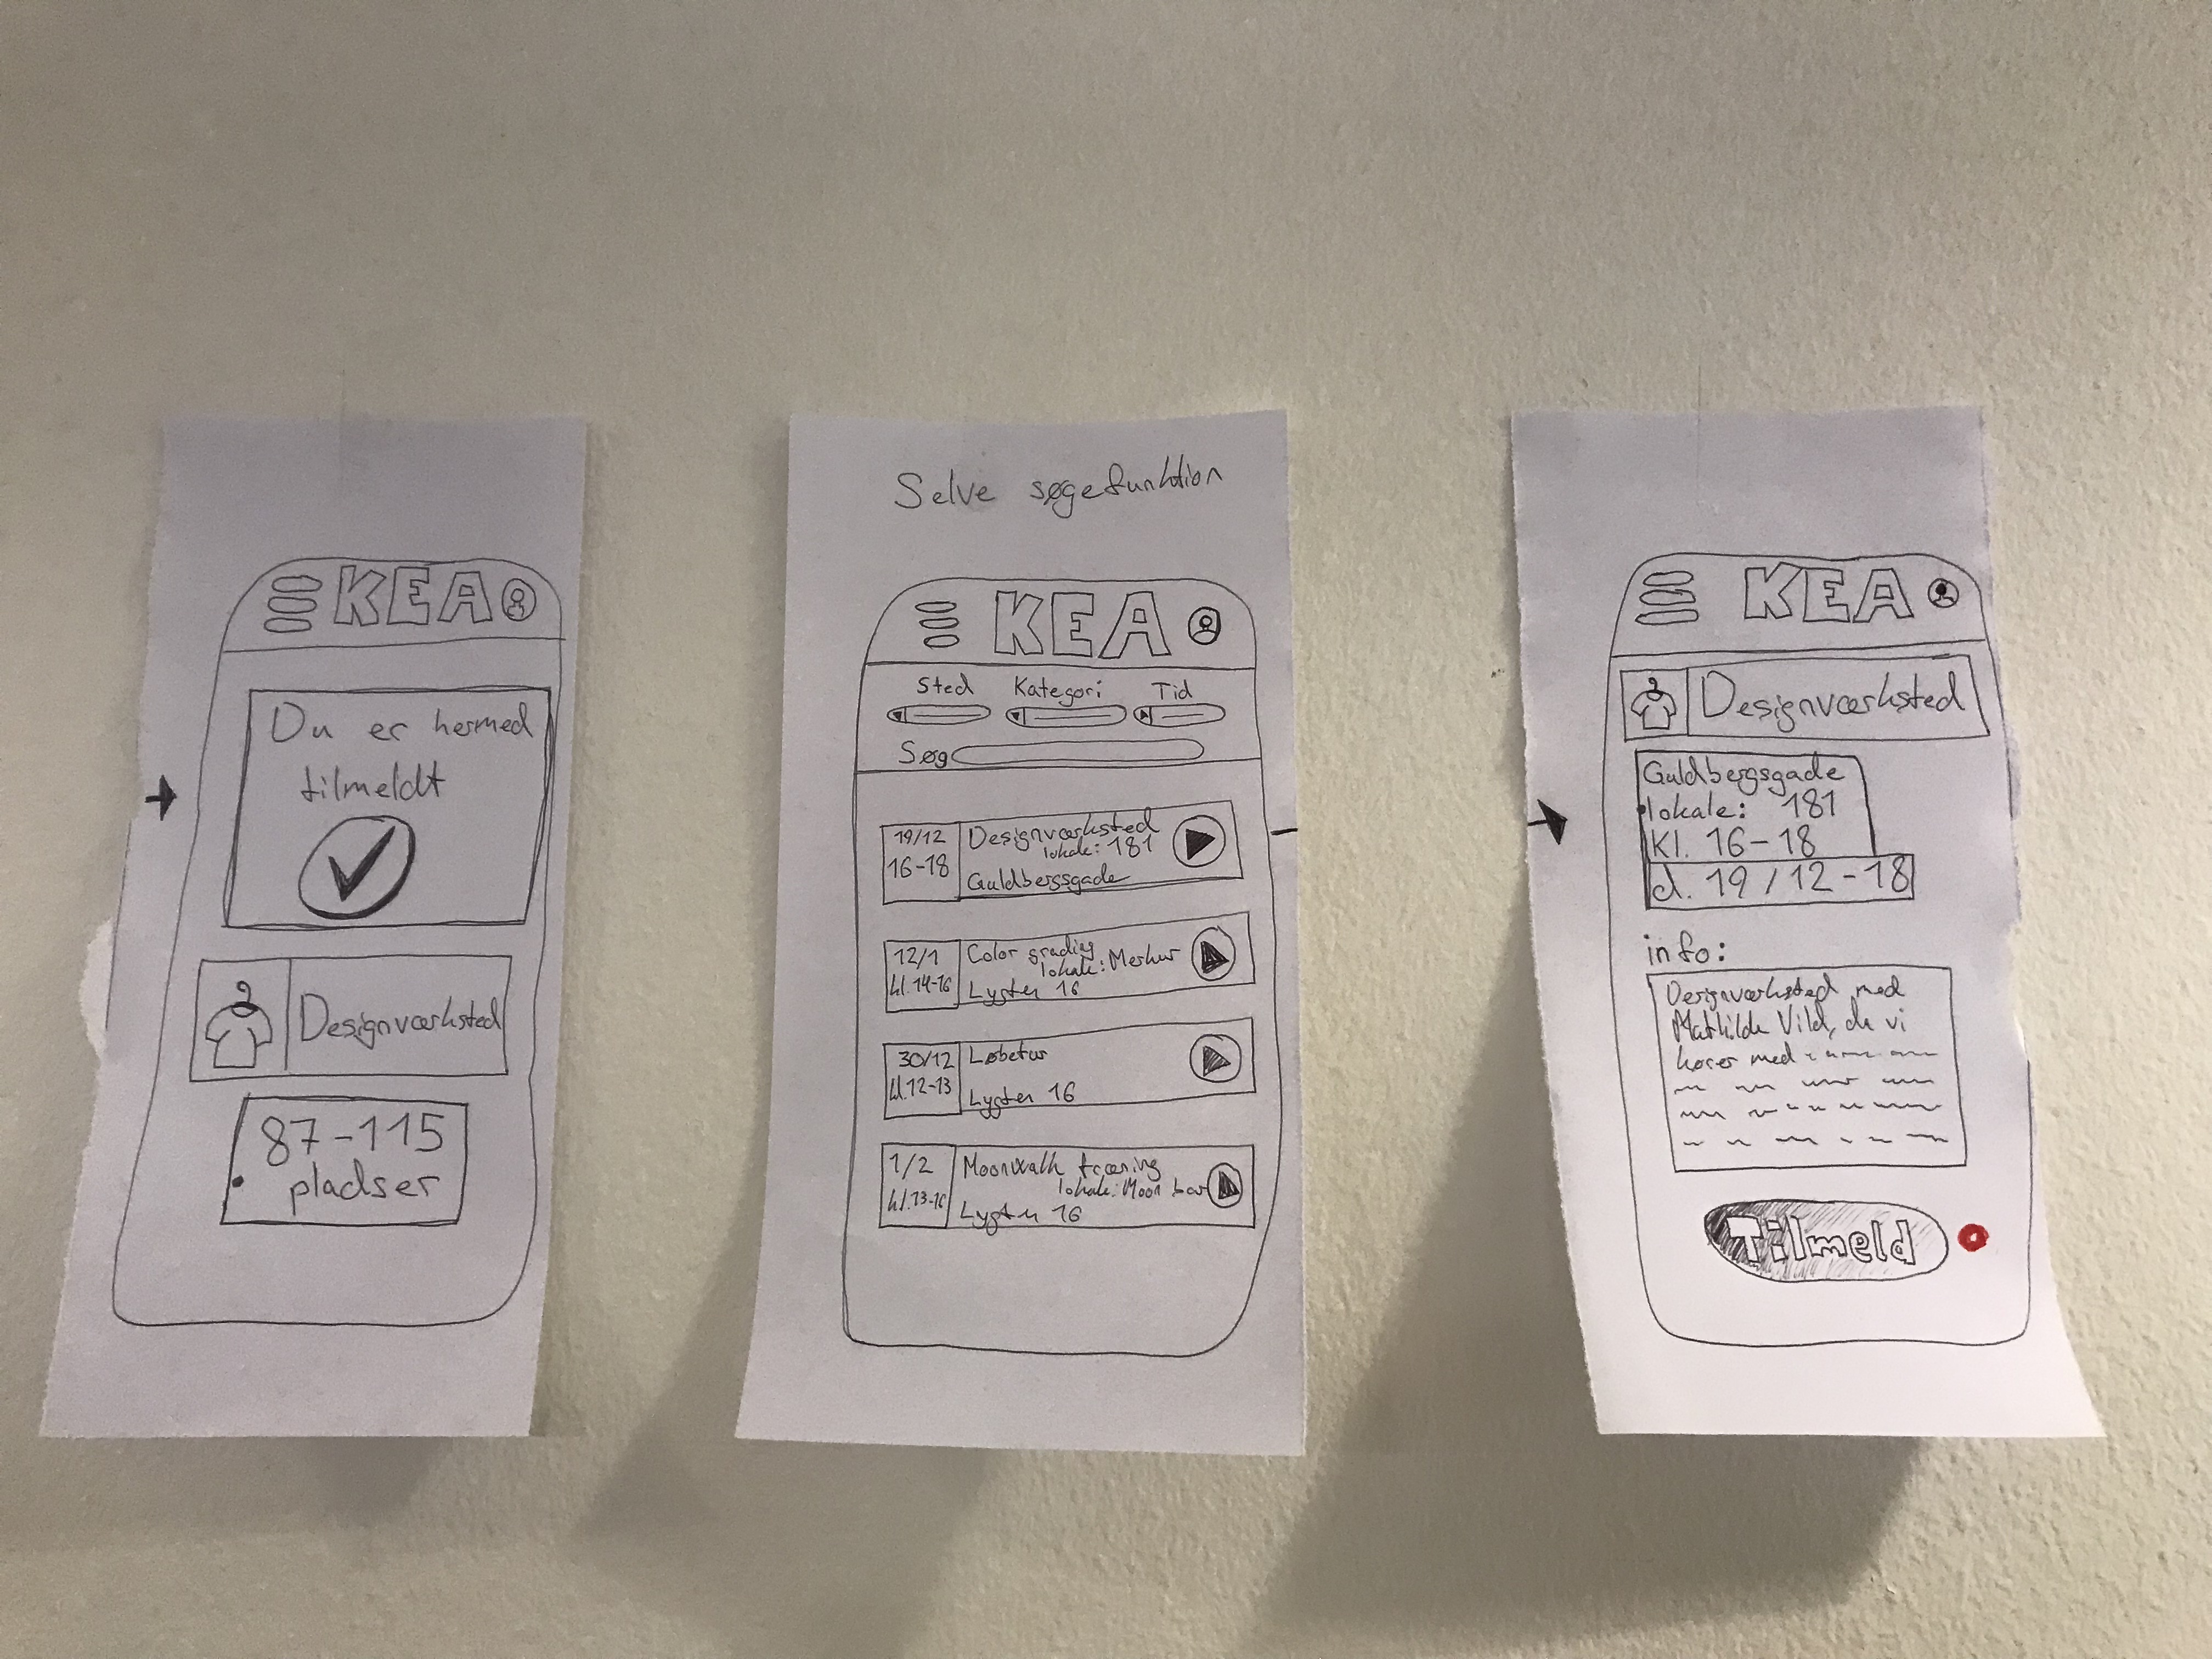 KEA
Du er hermed
tilmeldt
Designværksted
87-115
pladser
Selve søgefunktion
KEA
Sted Kategori Tid
Søg
19/12
16-18
Designværksted
lokale: 181
Guldbergsgade
12/1
kl.14-16
Color grading
lokale: Merkur
Lygten 16
30/12
kl.12-13
Løbetur
Lygten 16
1/2
kl.13-16
Moonwalk træning
lokale: Moon bar
Lygten 16
KEA
Designværksted
Guldbergsgade
lokale: 181
Kl. 16-18
d. 19/12-18
info:
Designværksted med
Mathilde Vild, vi
kører med
Tilmeld